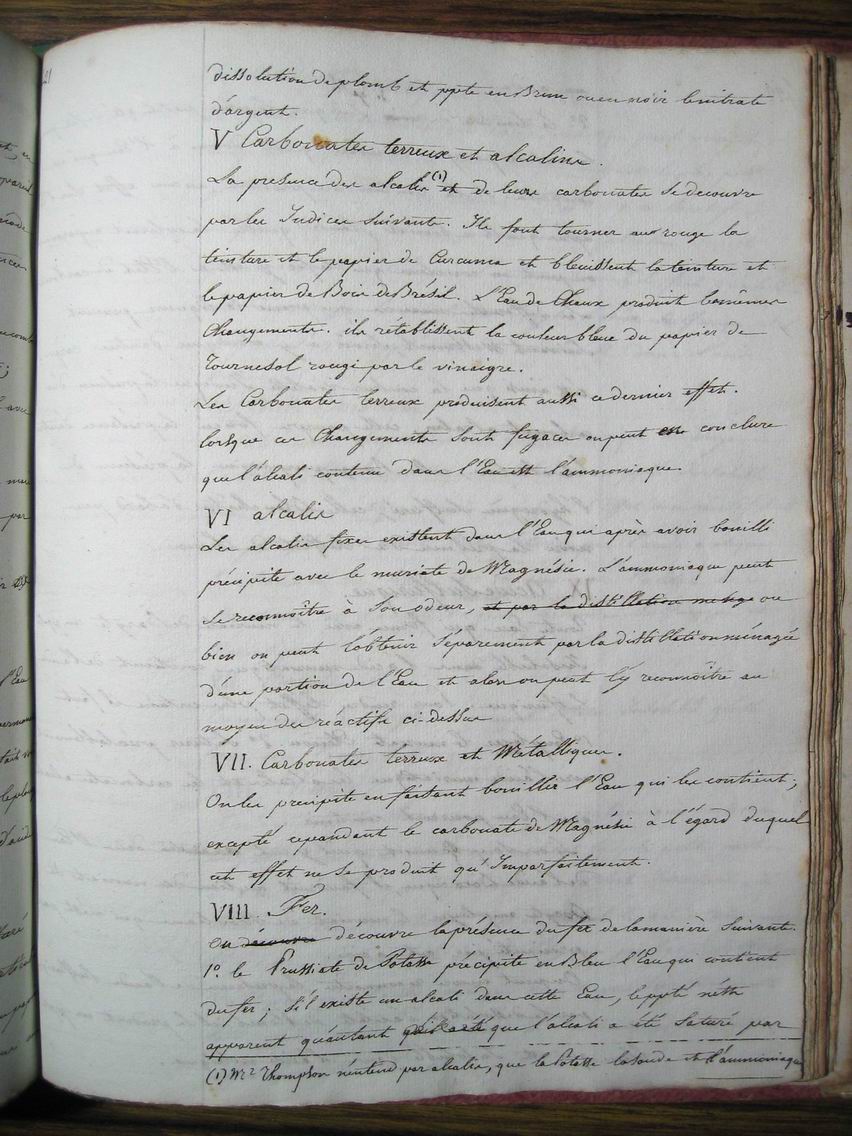 dissolution de plomb et ppte en Brun ou en noir le nitrate
d'argent.
V Carbonates terreux et alcalins.
La presence des alcalis (1) et de leurs carbonates se decouvre
par les Indices suivants. Ils font tourner au rouge la
teinture et le papier de Curcuma et bleuissent la teinture et
le papier de Bois de Brésil. L'Eau de Chaux produit les mêmes
Changements. ils rétablissent la couleur bleue du papier de
Tournesol rougi par le vinaigre.
Les Carbonates terreux produisent aussi ce dernier effet.
lorsque ces Changements sont fugaces on peut en conclure
que l'alcali contenu dans l'Eau est l'ammoniaque.
VI alcalis
Les alcalis fixes existent dans l'Eau qui après avoir bouilli
précipite avec le muriate de Magnésie. L'ammoniaque peut
se reconnoître à son odeur, et par la distillation ménagé ou
bien on peut l'obtenir séparément par la distillation ménagée
d'une portion de l'Eau et alors on peut l'y reconnoître au
moyen des réactifs ci-dessus
VII. Carbonates terreux et Métalliques.
On les precipite en faisant bouillir l'Eau qui les contient;
excepté cependant le carbonate de Magnésie à l'égard duquel
cet effet ne se produit qu'Imparfaitement.
VIII. Fer.
On découvre découvre la présence du fer de la manière suivante.
1º. le Prussiate de Potasse précipite en Bleu l'Eau qui contient
du fer; s'il existe un alcali dans cette Eau, le ppté n'est
apparent qu'autant que l'alcali a été saturé par
(1) Mr Thompson n'entend par alcalis, que la Potasse la soude et l'ammoniaque
21